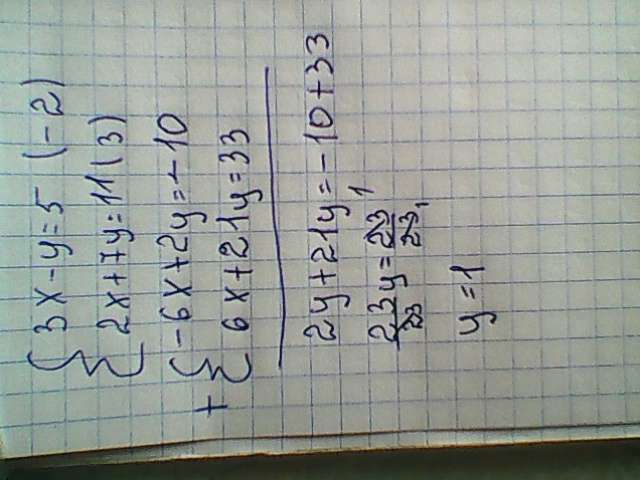 {3x-y=5 (-2)
{2x+7y=11 (3)
+{-6x+2y=-10
{6x+21y=33
2y+21y=-10+33
23y/23=23/23 1 1
y=1